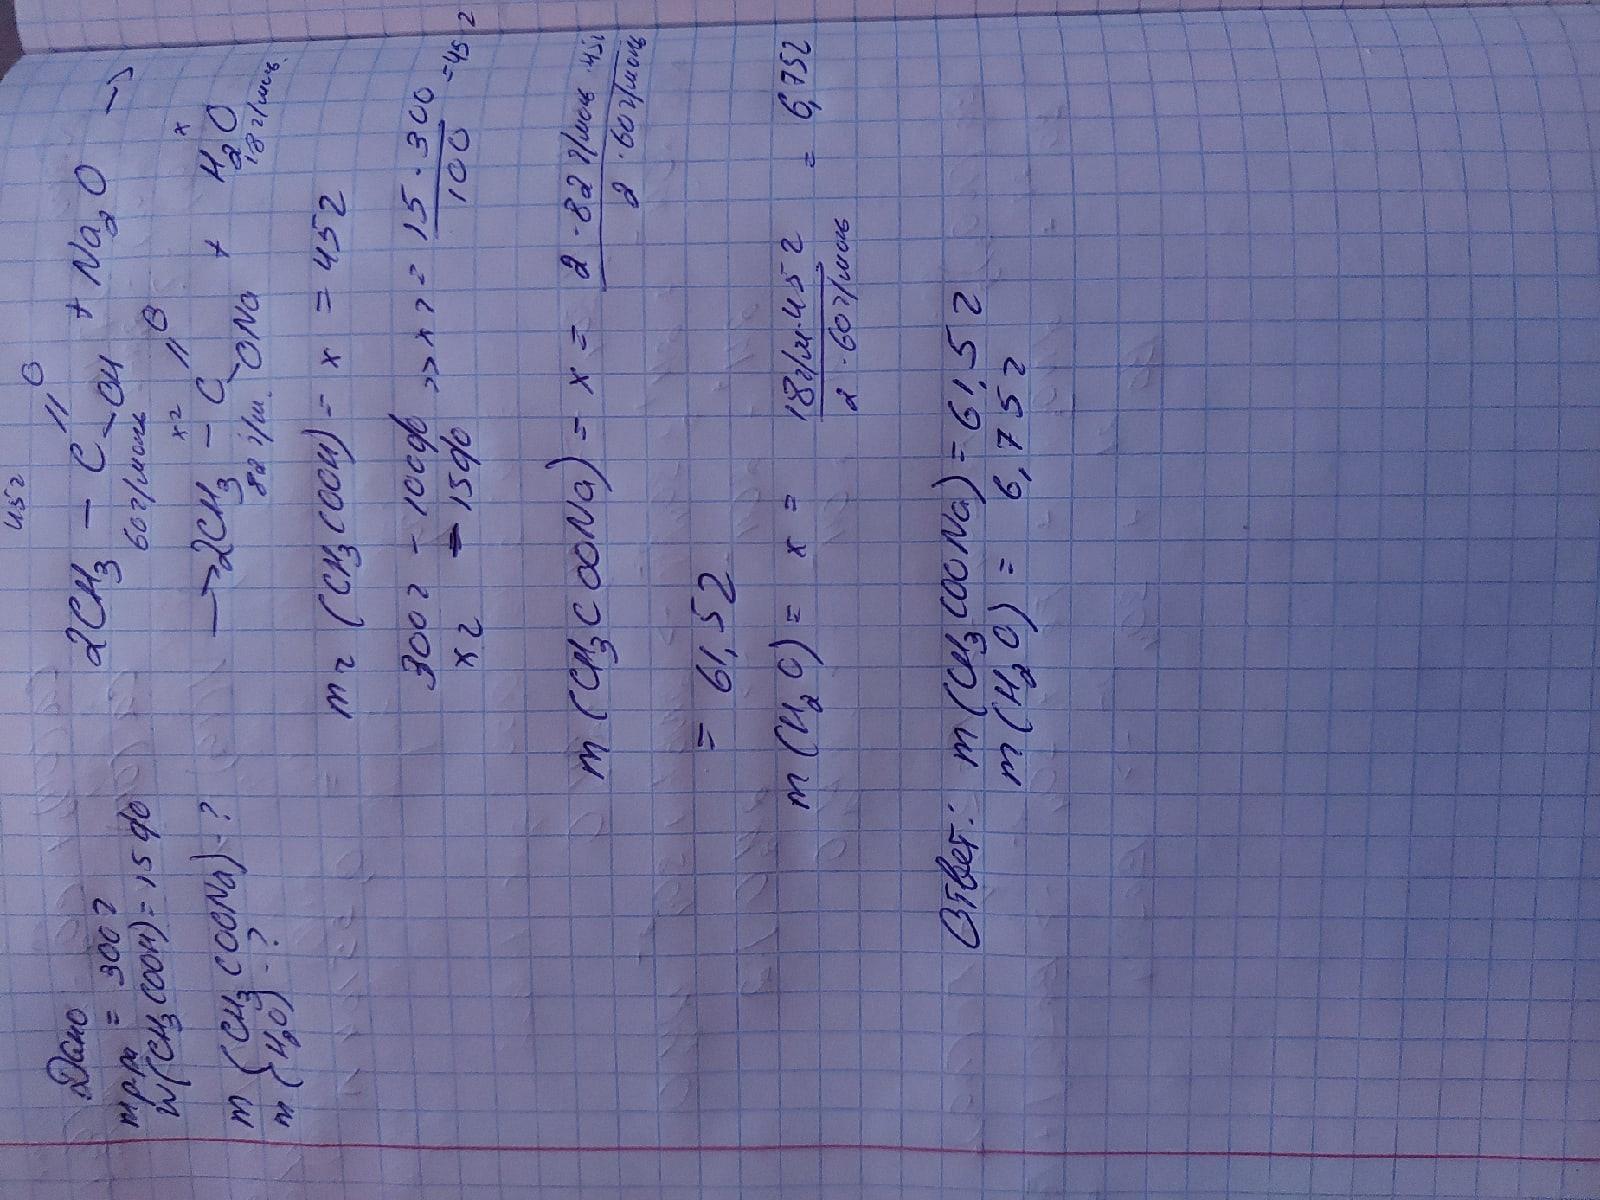 Дано
m р-ра = 300 г
W(CH3COOH) = 15 %
m (CH3COONa) - ?
m (H2O) - ?
45 г
2CH3 - C = O - OH + Na2O →
60 г/моль
x г
→ 2CH3 - C = O - ONa + H2O
82 г/м. 18 г/моль
x
m г (CH3COOH) = x = 45 г
300 г - 100 % >> x г = 15 · 300 / 100 = 45 г
x г - 15 %
m (CH3COONa) = x = 2 · 82 г/моль · 45 г / 2 · 60 г/моль
= 61,5 г
m (H2O) = x = 18 г/м · 45 г / 2 · 60 г/моль = 6,75 г
Ответ: m (CH3COONa) = 61,5 г
m (H2O) = 6,75 г